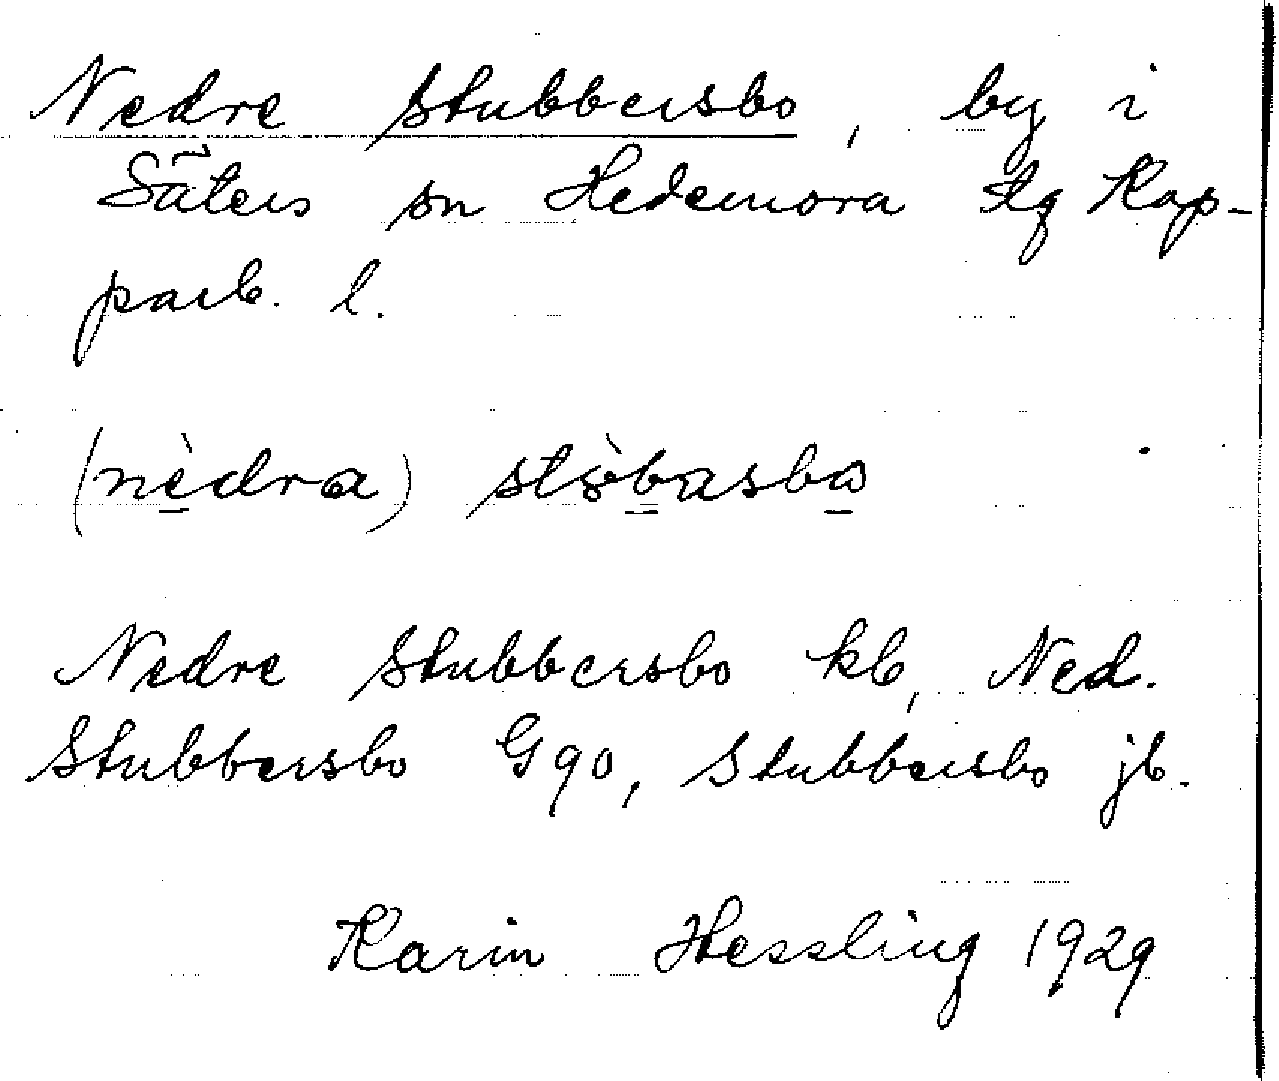 Nedre Stubbersbo, by i
Säters sn Hedemora tg Kop-
parb. l.
(nèdra) stòbasbo
Nedre Stubbersbo kb, Ned.
Stubbersbo G90, Stubbersbo jb.
Karin Hessling 1929